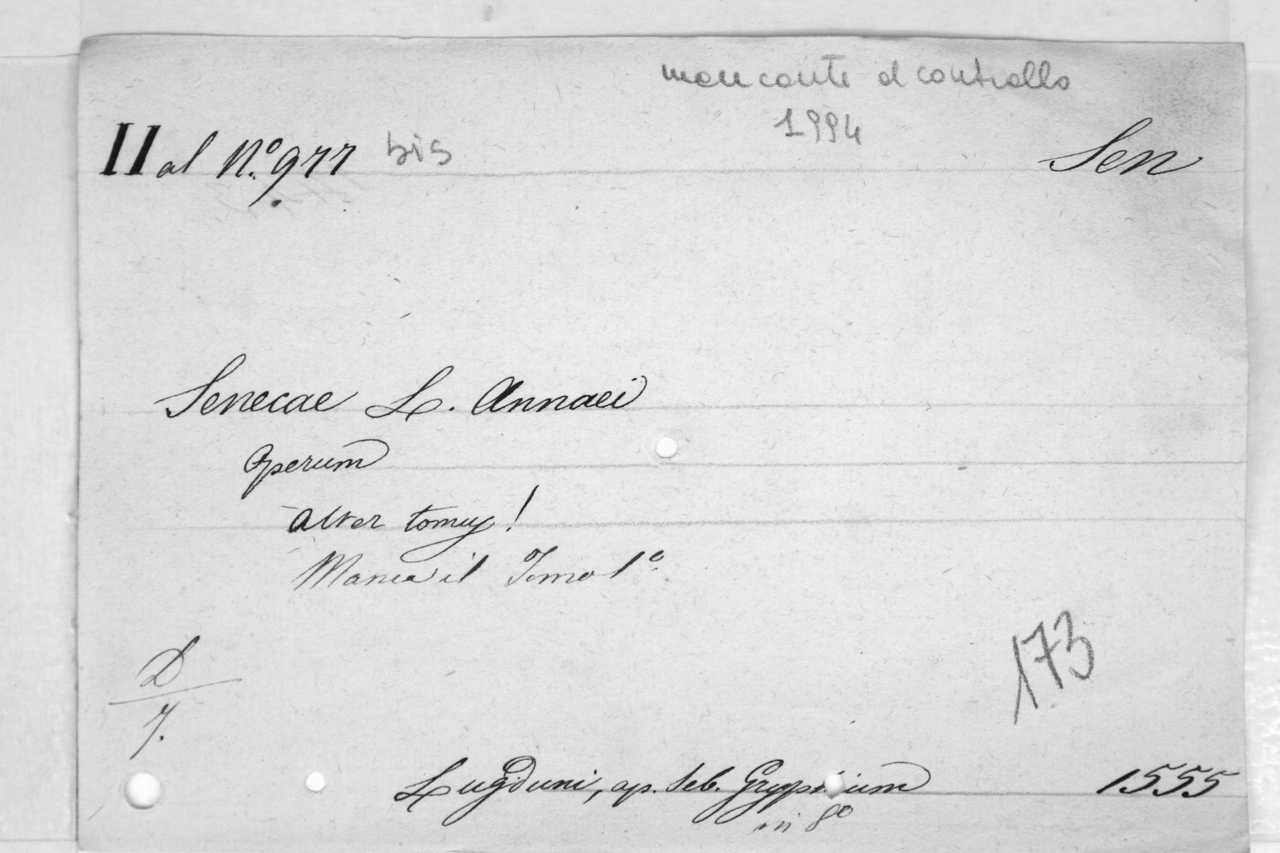 mancante al controllo
1994
II al N.º 977 bis
Sen
Senecae L. Annaei
Operum
alter tomus!
Manca il Tomo 1º
173
D
7.
Lugduni, ap. Seb. Gryphium 1555
in 8º